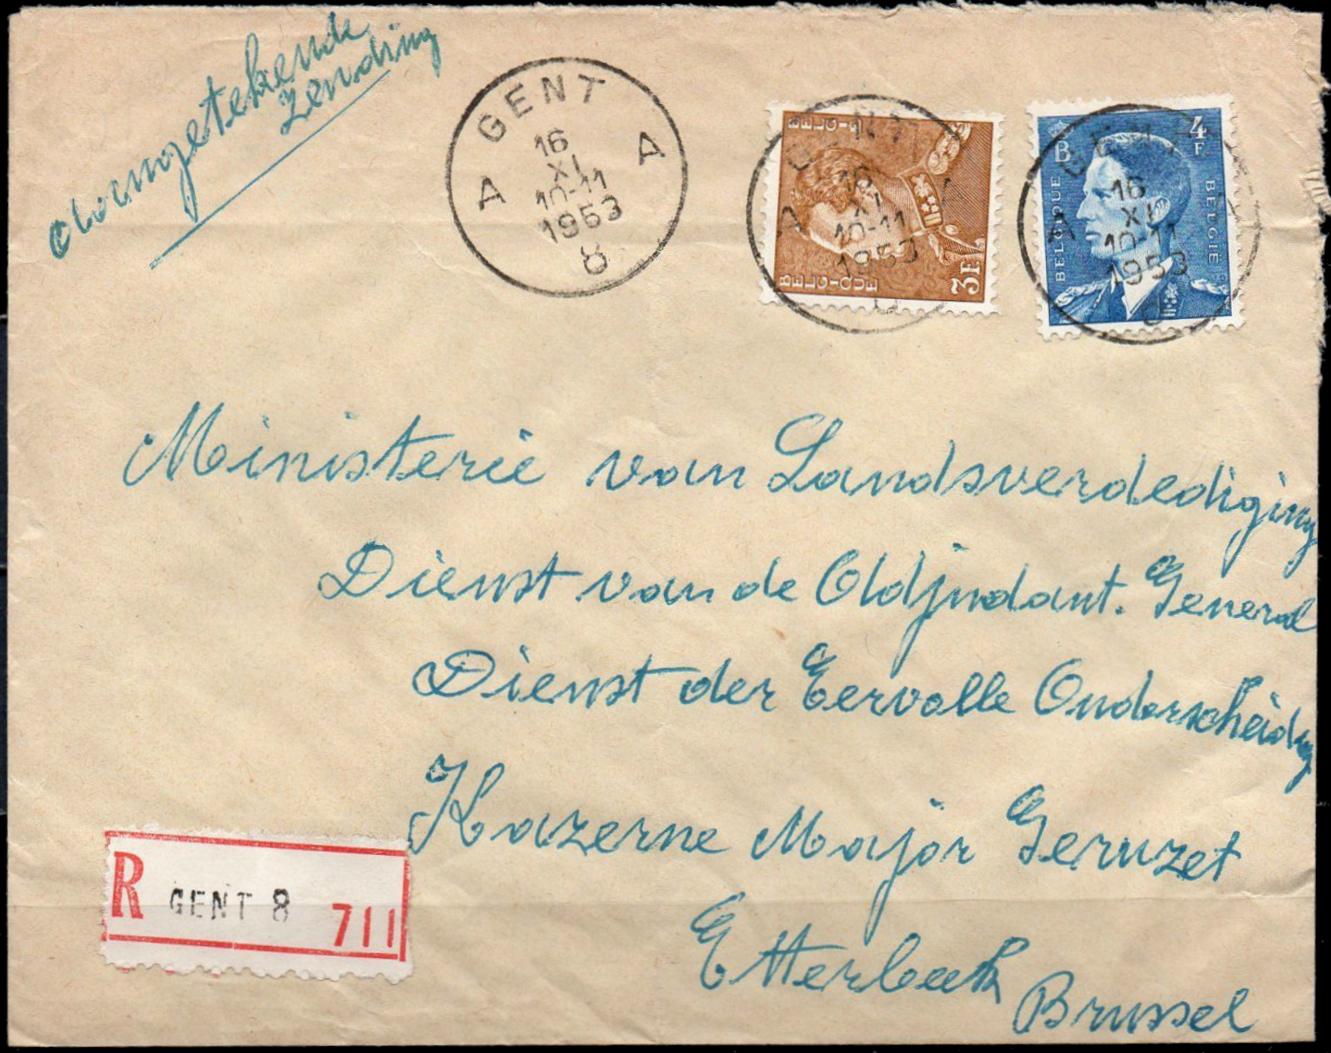 Aangetekende
zending
GENT
A A
16
XI
10-11
1953
8
BELGIQUE
BELGIË
3F
GENT
A A
16
XI
10-11
1953
B
4F
BELGIQUE
BELGIE
GENT
A
16
XI
10-11
1953
Ministerie van Landsverdediging
Dienst van de Adjudant. General
Dienst der Eervolle Onderscheiding
Kazerne Major Geruzet
Etterbeek
Brussel
R GENT 8 711